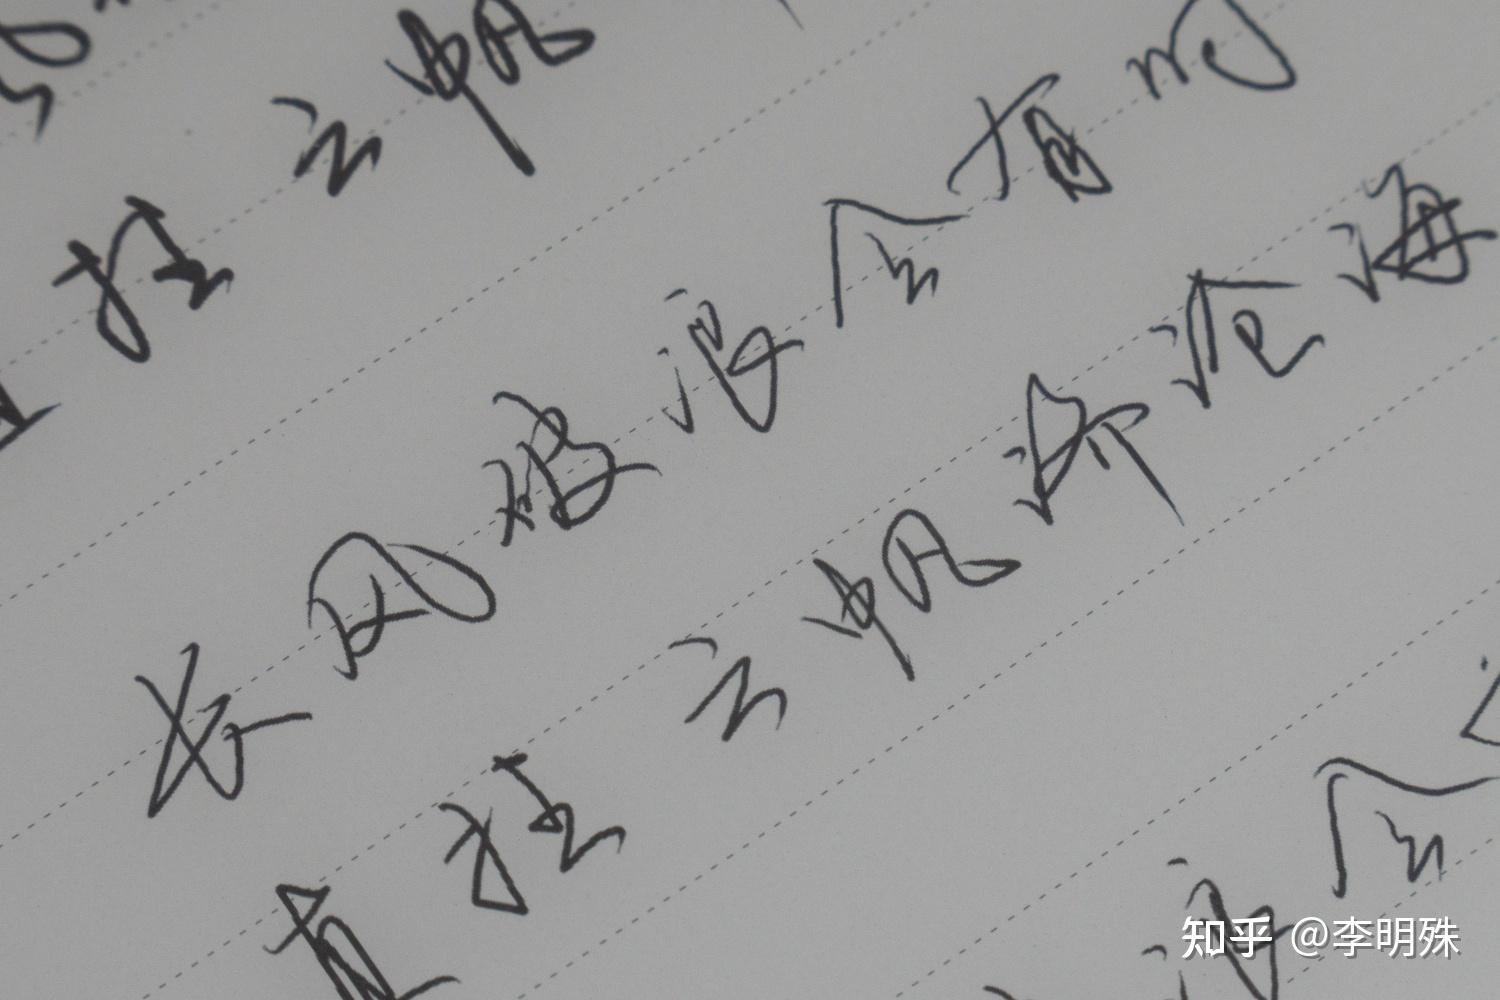 挂云帆
长风破浪会有时
直挂云帆济沧海
浪会
知乎 @李明殊